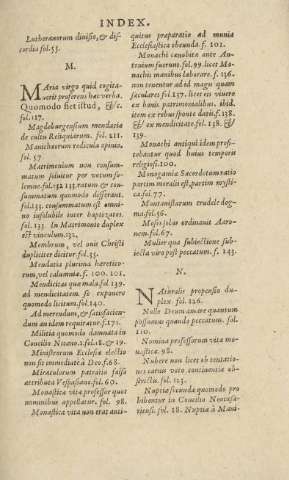 INDEX.
Lutheranorum divisio, & dis-
cordia fol.55.
M.
Maria virgo quid cogita-
verit proferens hæc verba,
Quomodo fiet istud, &c.
fol.127.
Magdeburgensium mendacia
de cultu Reliquiarum. fol. 211.
Manichæorum rediviva opinio,
fol. 57
Matrimonium non consum-
matum solvitur per votum so-
lemne.fol.132 133.ratum & con-
summatum quomodo differant.
fol.133. consummatum est omni-
no insolubile inter baptizatos.
fol. 133. In Matrimonio duplex
est vinculum.132.
Membrum, vel unū Christi
dupliciter dicitur fol.35.
Mendacia plurima hæretico-
rum, vel calumniæ. f. 100. 101.
Mendicitas qua mala.fol.139.
ad mendicitatem se exponere
quomodo licitum.fol.140.
Ad merendum, & satisfacien-
dum an idem requiratur.f.171.
Militia quomodo damnata in
Concilio Nicæno.1.fol.18. & 19.
Ministrorum Ecclesiæ electio
non fit immediatè à Deo.f.68.
Miraculorum patratio falsò
attributa Vespasiano.fol. 60.
Monastica vita professor quot
nominibus appellatur. fol. 98.
Monastica vita non erat anti-
quitus præparatio ad munia
Ecclesiastica obeunda. f. 102.
Monachi cænobitæ ante An-
tonium fuerunt.fol.99.licet Mo-
nachis manibus laborare. f. 136.
non tenentur adeò magu quàm
seculares fol.137. licet eis vivere
ex bonis patrimonialibus. ibid.
item ex rebus sponte datis.f.138.
& ex mendicitate fol. 138. &
139.
Monachi antiqui idem profi-
tebantur quod huius temporis
religiosi.100.
Monogamia Sacerdotum ratio
partim moralis est,partim mysti-
ca.fol.77.
Montanistarum crudele dog-
ma.fol.56.
Moses solus ordinavit Aaro-
nem.fol.67.
Mulier quæ subiectione sub-
iecta viro post peccatum. f. 143.
N.
Naturalis propensio du-
plex. fol. 126.
Nullo Deum amare quantum
possumus quando peccatum. fol.
110.
Nomina professorum vitæ mo-
nasticæ. 98.
Nubere non licet ob tentatio-
nes carnis voto continentiæ ob-
strictis. fol. 123.
Nuptiæ secundæ quomodo pro
hibentur in Concilio Neocæsa-
riensi. fol. 18. Nuptiæ à Mani-